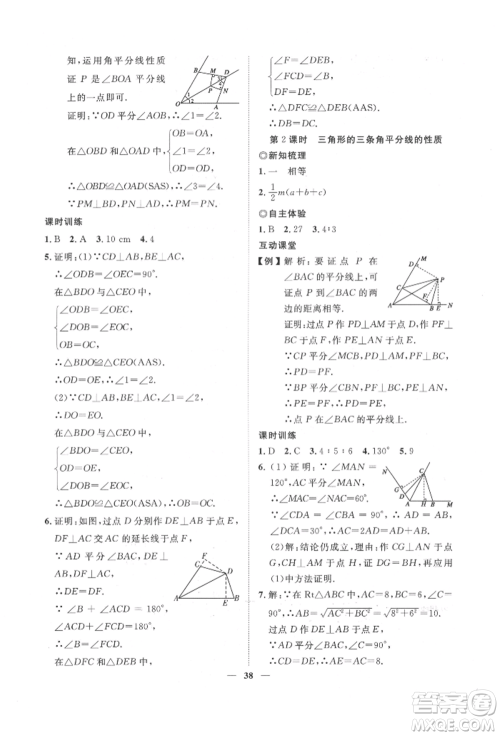 知,运用角平分线性质
证 P 是∠BOA 平分线
上的一点即可.
证明:∵OD 平分∠AOB,
∴∠1=∠2.
在△OBD 和△OAD 中,
OB=OA
∠1=∠2
OD=OD,
∴△OBD≌△OAD(SAS). ∴∠3=∠4.
∵PM⊥BD,PN⊥AD, ∴PM=PN.
课时训练
1. B 2. A 3. 10 cm 4. 4
5. 证明:(1)∵CD⊥AB,BE⊥AC,
∴∠ODB=∠OEC=90°.
在△BDO 与△CEO 中,
∠ODB=∠OEC
∠DOB=∠EOC
OB=OC.
∴△BDO≌△CEO(AAS).
∴OD=OE. ∴∠1=∠2.
(2)∵∠1=∠2,CD⊥AB,BE⊥AC,
∴DO=EO.
在△BDO 与△CEO 中,
∠ODB=∠OEC
DO=EO
∠DOB=∠EOC
∴△BDO≌△CEO(ASA). ∴OB=OC.
6. 证明:如图,过点 D 分别作 DE⊥AB 于点 E,
DF⊥AC 交 AC 的延长线于点 F.
∵AD 平分∠BAC,DE⊥
AB,DF⊥AC,
∴DE=DF.
∵∠B+∠ACD=180°,
∠ACD+∠FCD=180°,
∴∠B=∠FCD.
在△DFC 与△DEB 中,
∠F=∠DEB
∠FCD=∠B
DF=DE,
∴△DFC≌△DEB(AAS). ∴DC=DB.
第 2 课时 三角形的三条角平分线的性质
◎新知梳理
1. 一 相等
2. 1/2 m(a+b+c)
◎自主体验
1. B 2. 27 3. 4∶3
互动课堂
【例】解析:要证点 P 在
∠BAC 的平分线上,可
证点 P 到∠BAC 的两
边的距离相等.
证明:过点 P 作 PD⊥AM 于点 D,作 PE⊥
AN 于点 E,作 PF⊥BC 于点 F.
∵CP 平分∠MCB,PD⊥AM,PF⊥BC,
∴PD=PF.
∵BP 平分∠CBN,PF⊥BC,PE⊥AN,
∴PF=PE. ∴PD=PE.
∴点 P 在∠BAC 的平分线上.
课时训练
1. D 2. C 3. 4∶5∶6 4. 130° 5. 9
6. (1)证明:∵∠MAN=
120°,AC 平分∠MAN,
∴∠DAC=∠BAC=60°.
∵∠ABC=∠ADC=90°,
∴∠DCA=∠BCA=30°.
∵∠CDA=∠CBA=90°,∴AD=1/2AC,
AB=1/2AC. ∴AD+AB=AC.
(2)解:结论仍成立,理由:作 CG⊥AN 于点
G,CH⊥AM 于点 H,证得 DG=BH,再仿
(1)中方法证明.
7. 解:∵在 Rt△ABC 中,AC=BC=8,∠C=
90°,∴AB=√(AC²+BC²)=√(8²+6²)=10.
∵AD 平分∠CAB,
∴CD=DE. ∴AE=AC=8.
38
答案圈
MXQE.COM